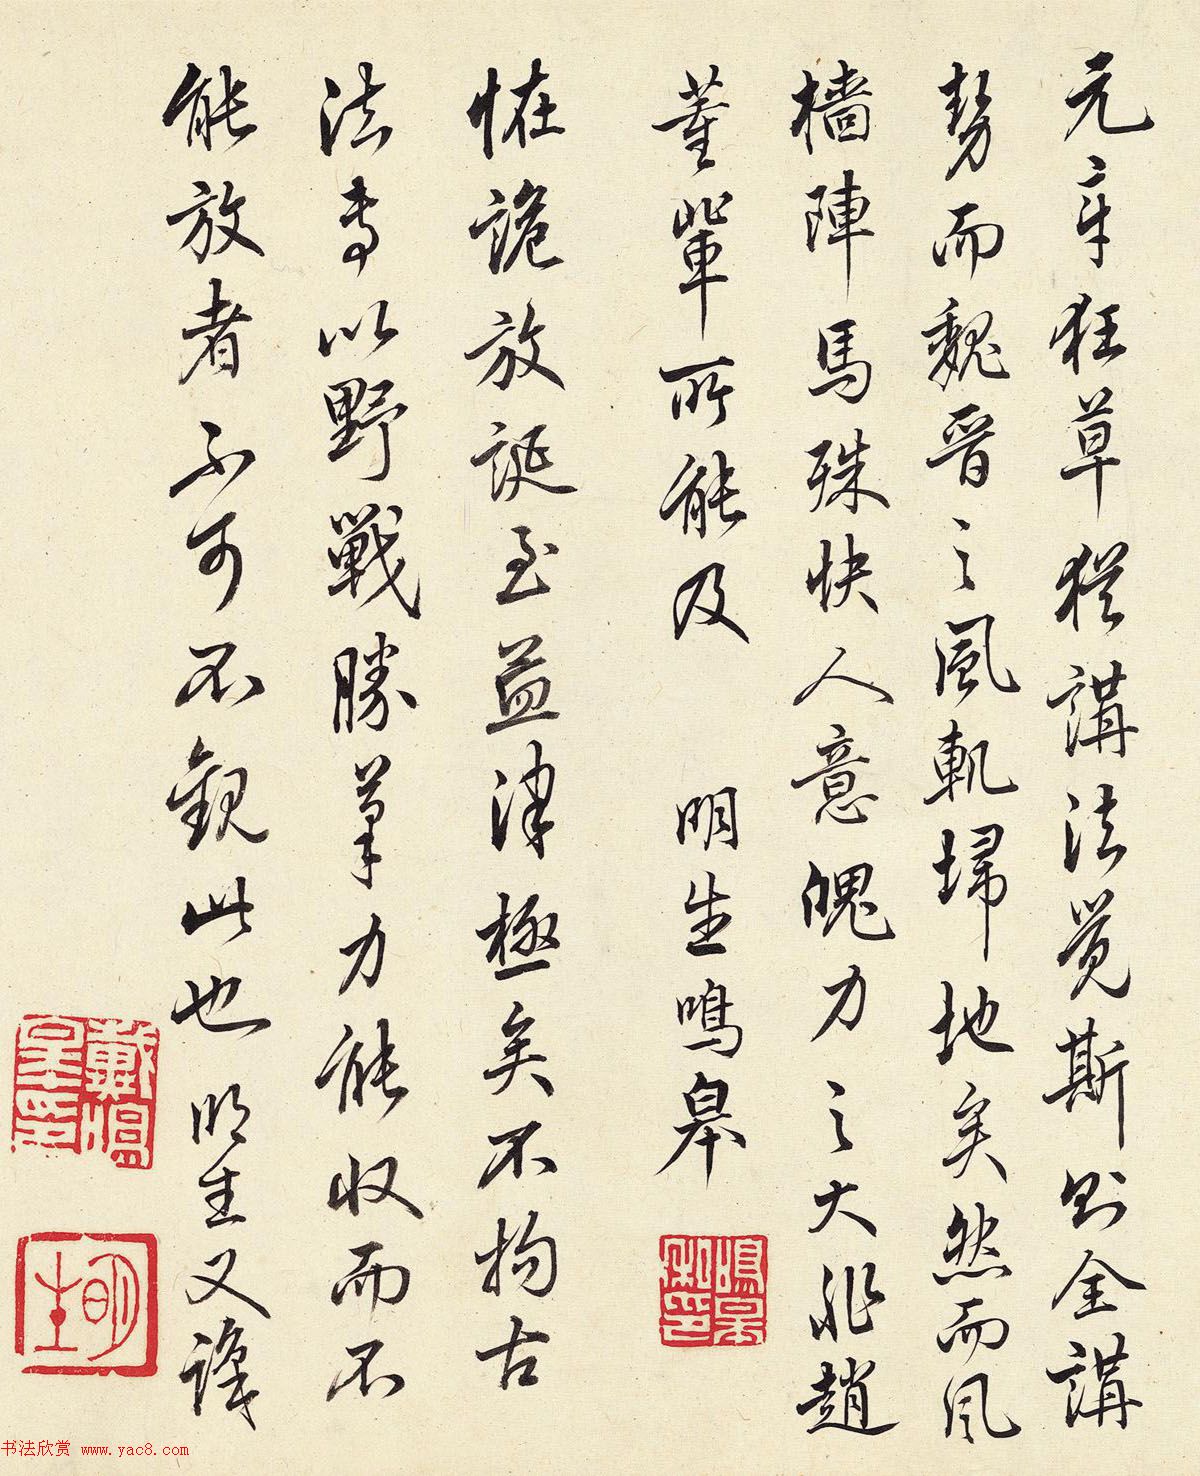 元章狂草犹講法覺斯則全講
勢而魏晉之風軌埽地矣然而風
檣陣馬殊快人意魄力之大非趙
董輩所能及 明生鳴皋
恠詭放誕至孟津極矣不拘古
法專以野戰勝筆力能收而不
能放者不可不觀此也 明生又識
戴愠
皋印
明生
书法欣赏 www.yac8.com